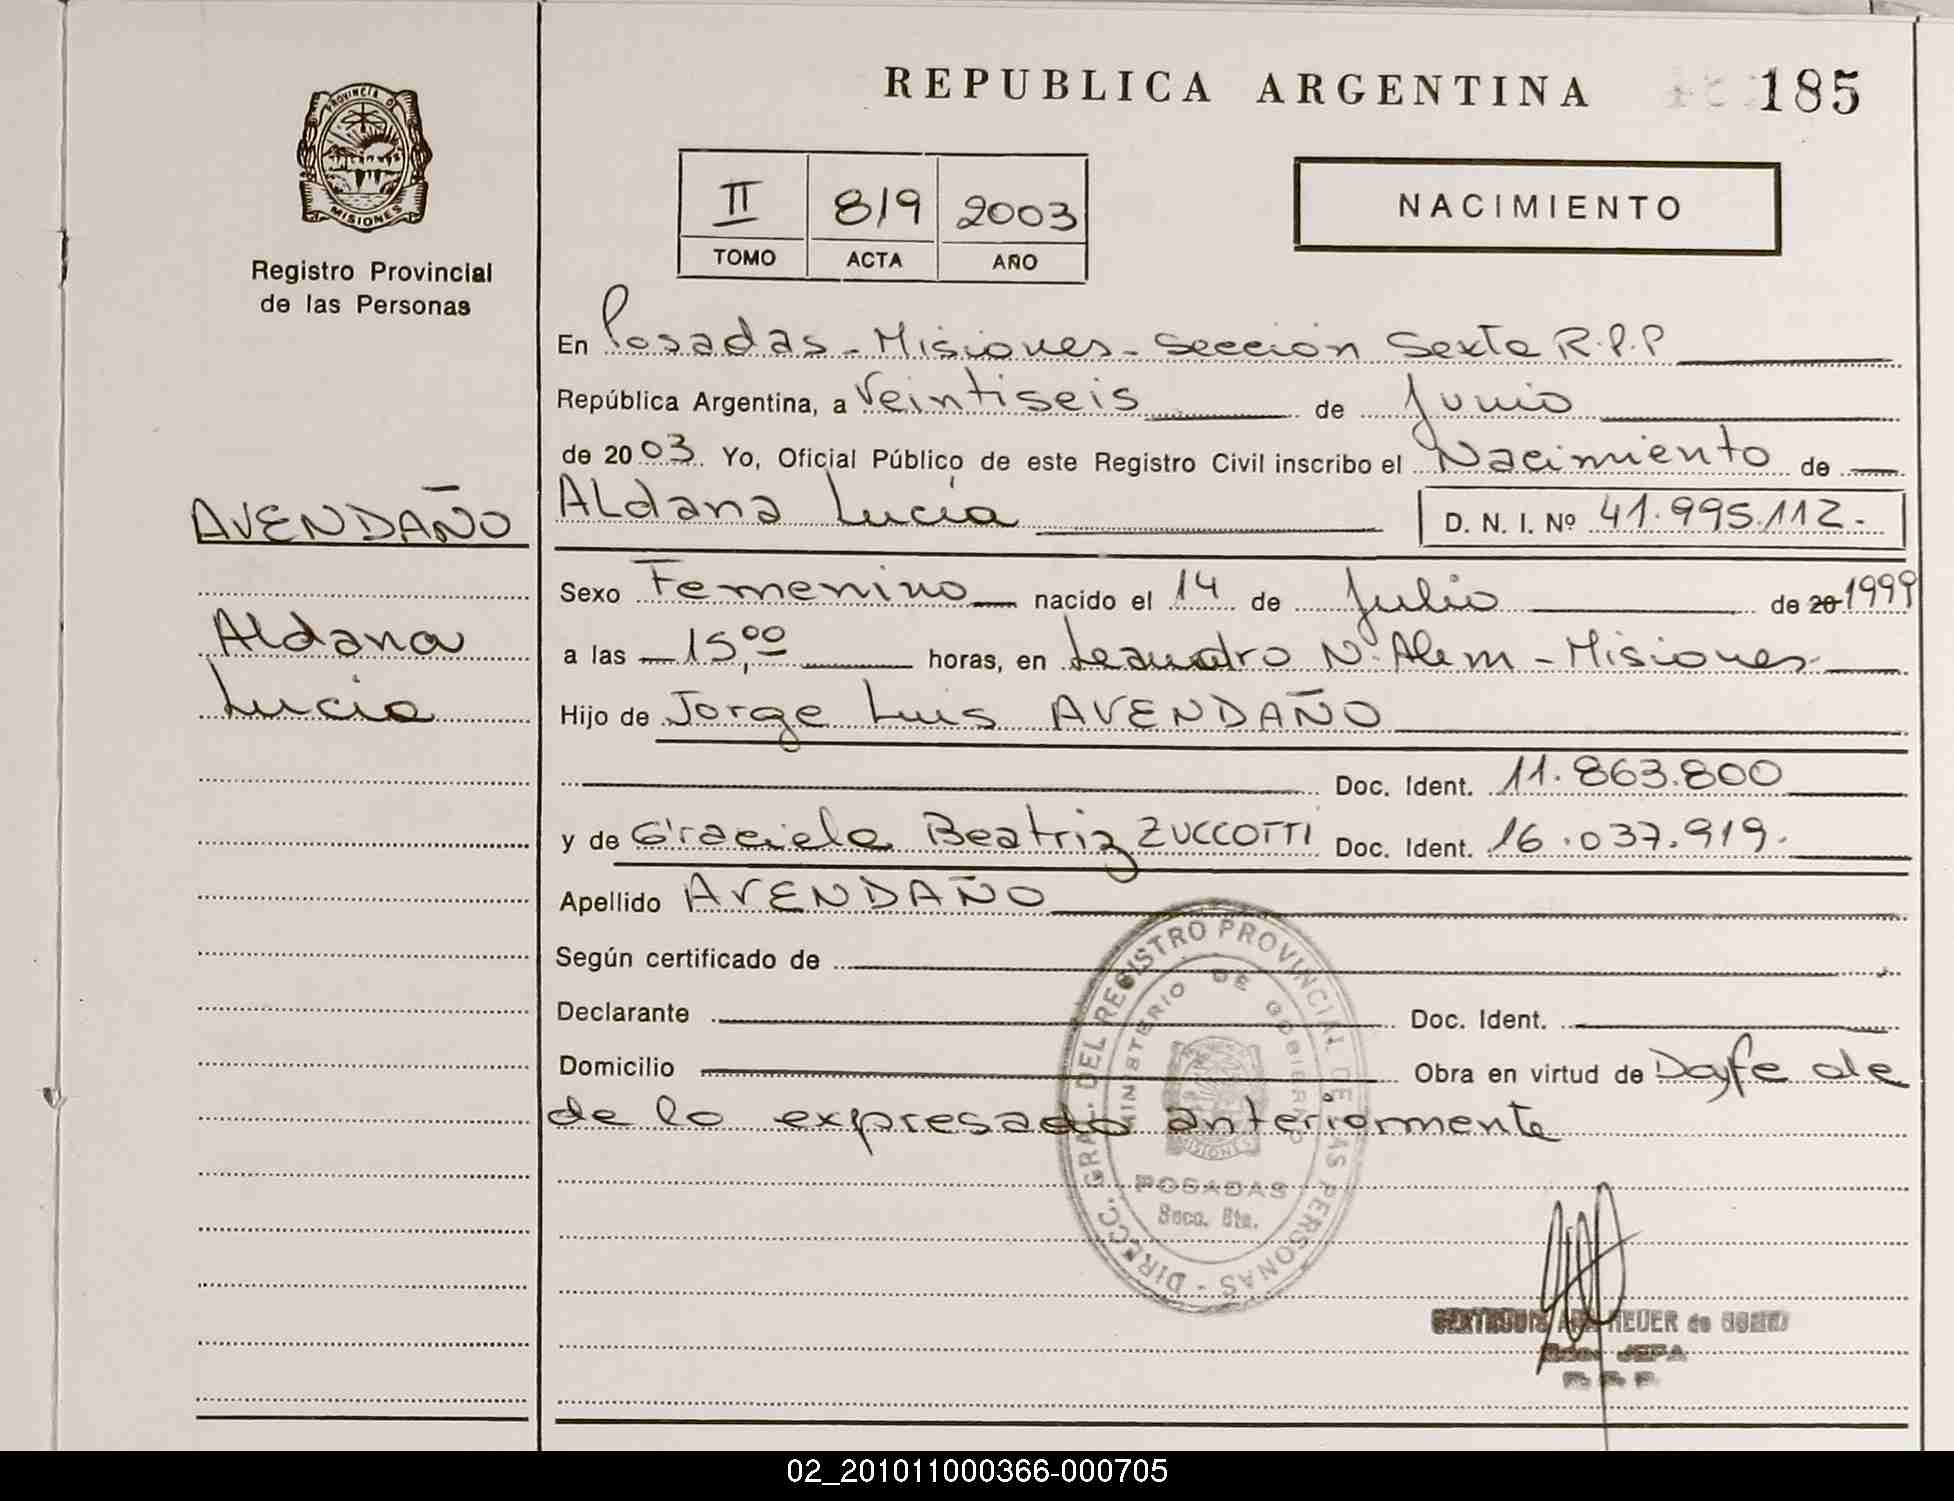 REPUBLICA ARGENTINA
185
PROVINCIA D
MISIONES
Registro Provincial
de las Personas
II 819 2003
TOMO ACTA AÑO
NACIMIENTO
En Posadas - Misiones - Sección Sexta R.P.P
República Argentina, a Veintiseis de Junio
de 2003. Yo, Oficial Público de este Registro Civil inscribo el Nacimiento de
Aldana Lucía D. N. I. Nº 41.995.112.-
AVENDAÑO
Aldana
Lucia
Sexo Femenino nacido el 14 de Julio de 20 1999
a las 15,00 horas, en Leandro N. Alem - Misiones
Hijo de Jorge Luis AVENDAÑO
Doc. Ident. 11.863.800
y de Graciela Beatriz ZUCCOTTI Doc. Ident. 16.037.919.
Apellido AVENDAÑO
Según certificado de
Declarante Doc. Ident.
Domicilio Obra en virtud de Doy fe de
de lo expresado anteriormente
DIRECC. GRAL. DEL REGISTRO PROVINCIAL DE LAS PERSONAS -
MINISTERIO DE GOBIERNO
MISIONES
POSADAS
Secc. 6ta.
HEUER de
JEFA
02_201011000366-000705